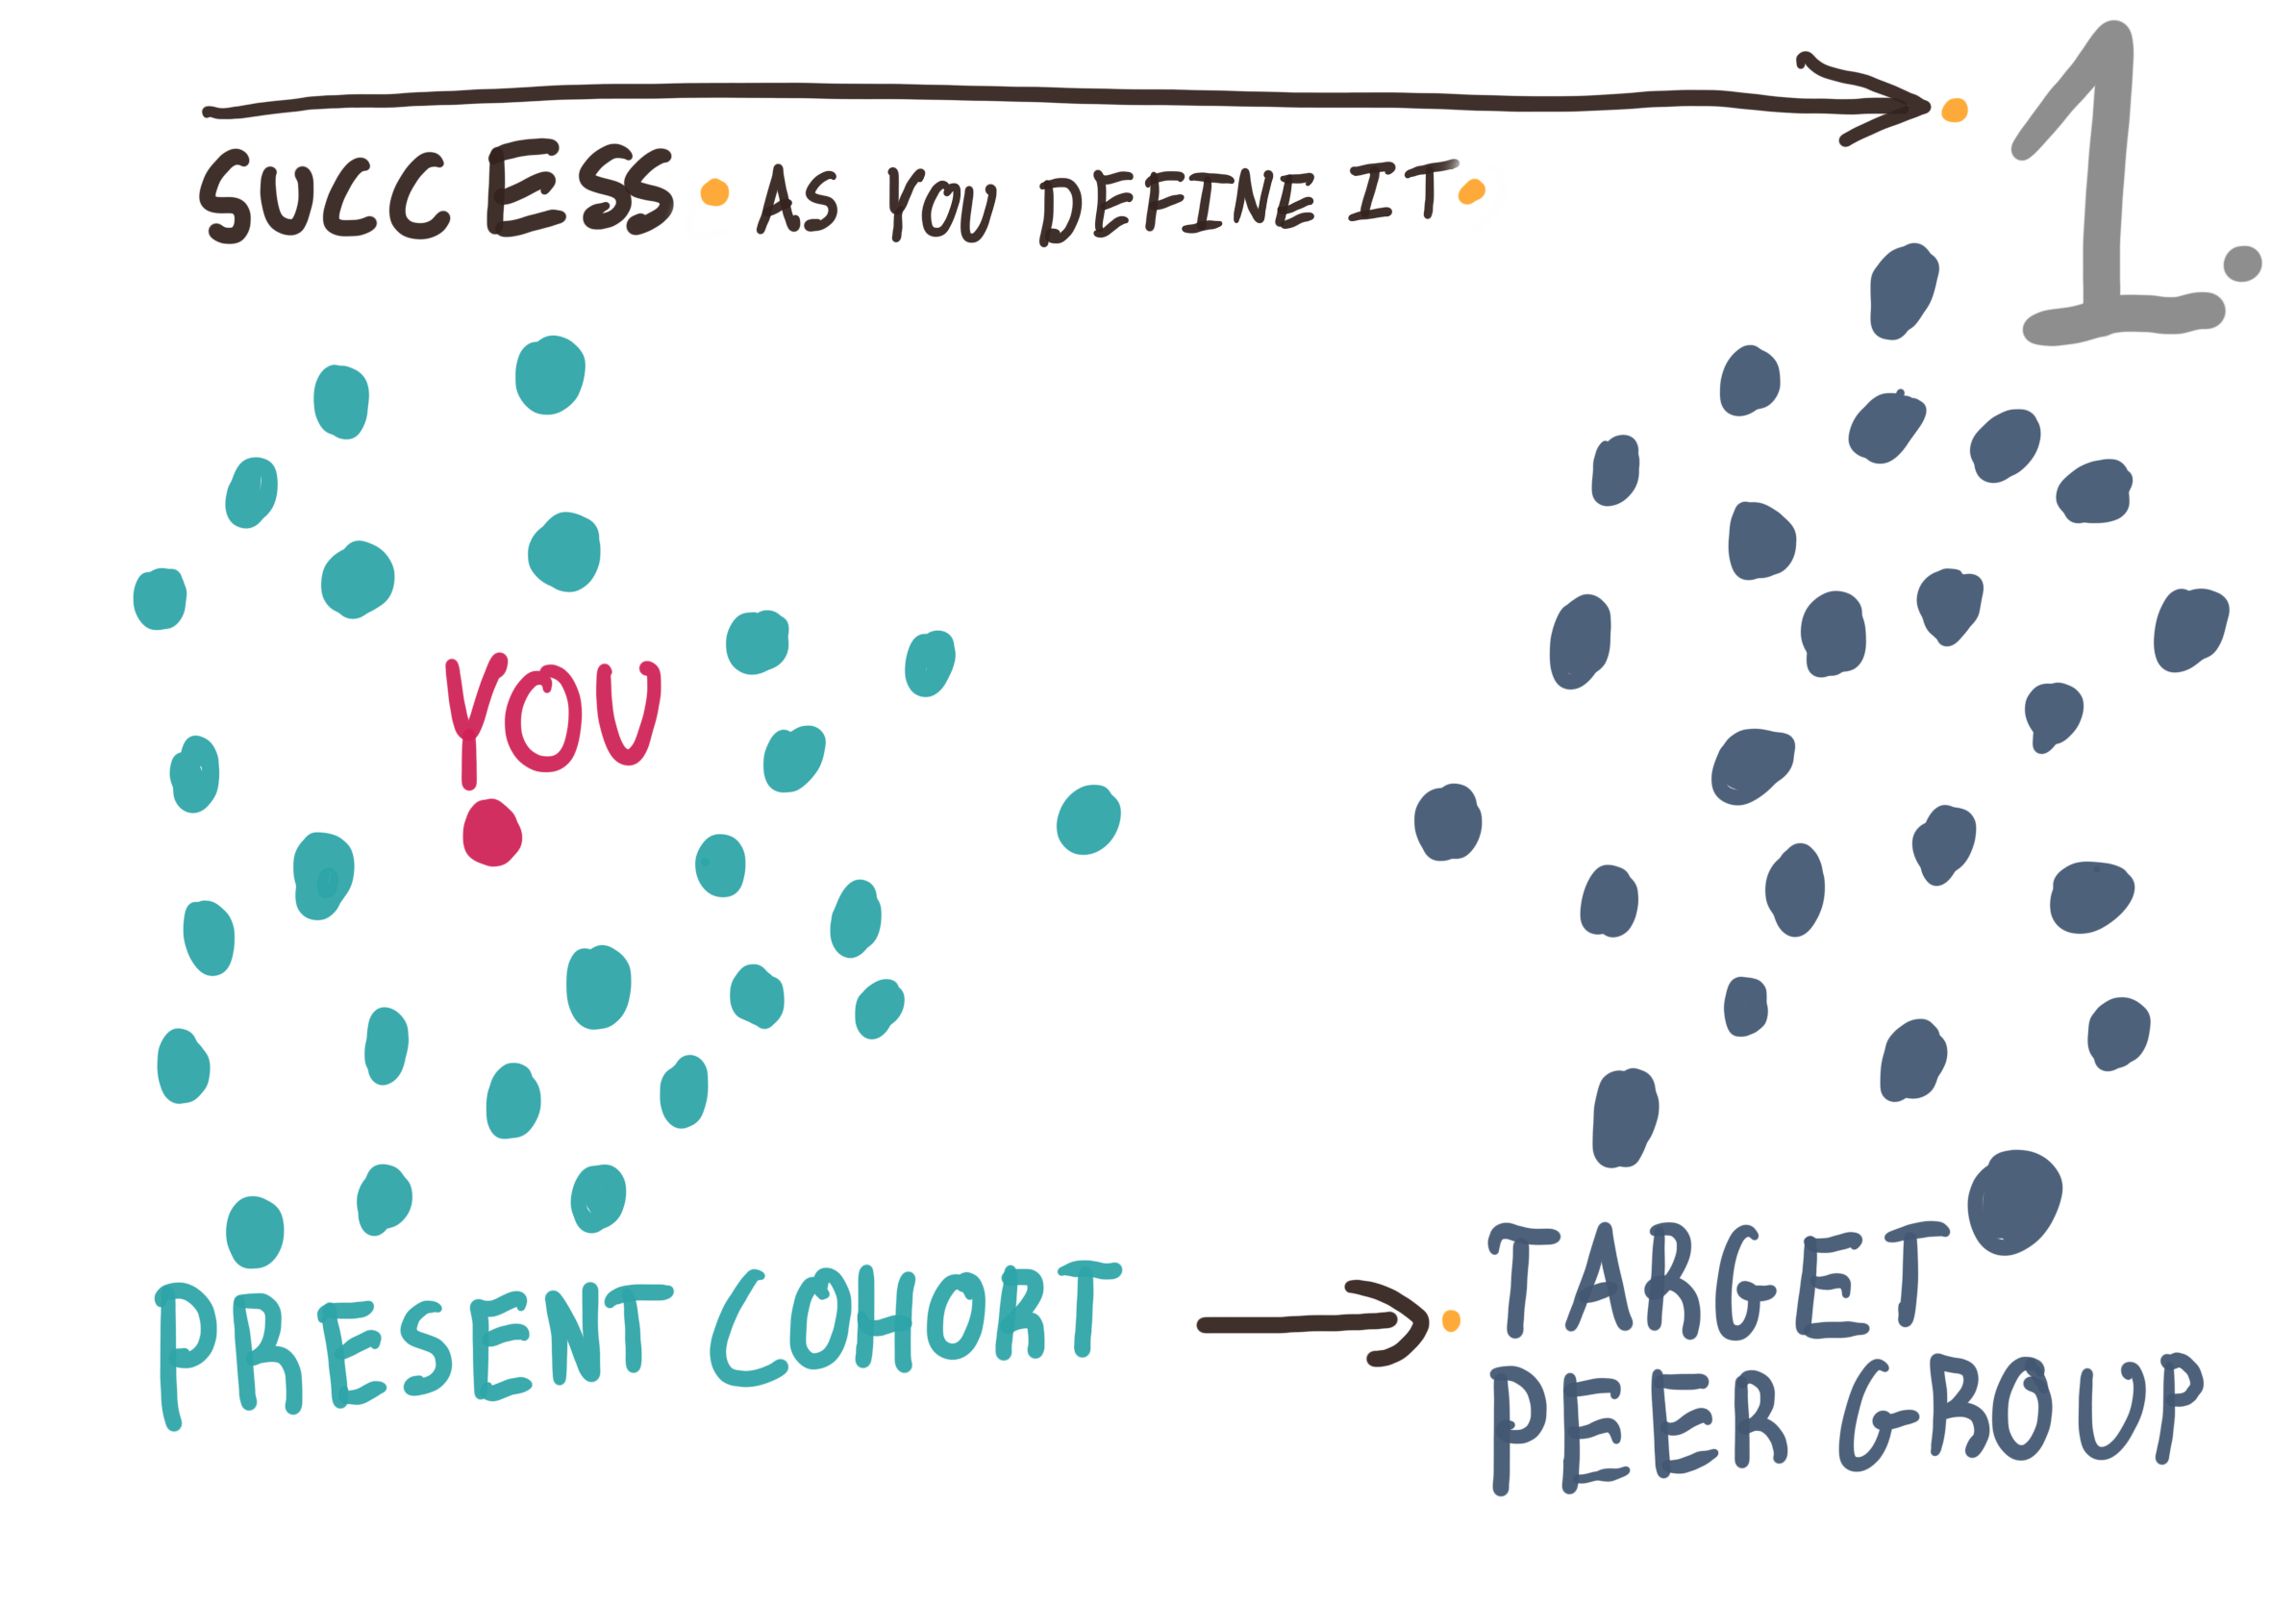 1.
SUCCESS • AS YOU DEFINE IT •
YOU
PRESENT COHORT → • TARGET
PEER GROUP